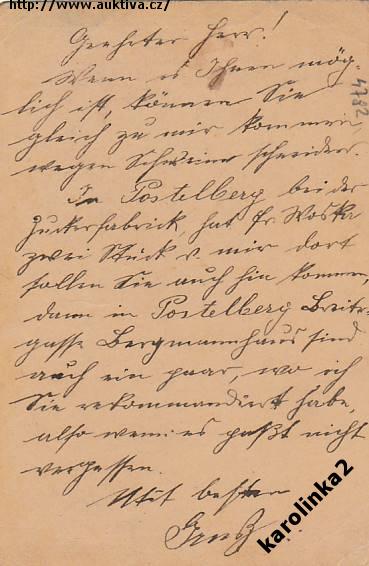 http://www.auktiva.cz/
Geehrter Herr!
Wenn es Ihnen mög-
lich ist, können Sie
gleich zu mir kommen,
wegen Schweine schneiden.
In Postelberg bei der
Zuckerfabrick, hat Fr. Woska
zwei Stück v. mir dort
sollen Sie auch hin kommen,
dann in Postelberg Breite-
gasse Bergmannhaus sind
auch ein paar, wo ich
Sie rekommandiert habe,
also wenn es paßt nicht
vergessen.
Mit besten
Gruß
4782
karolinka2